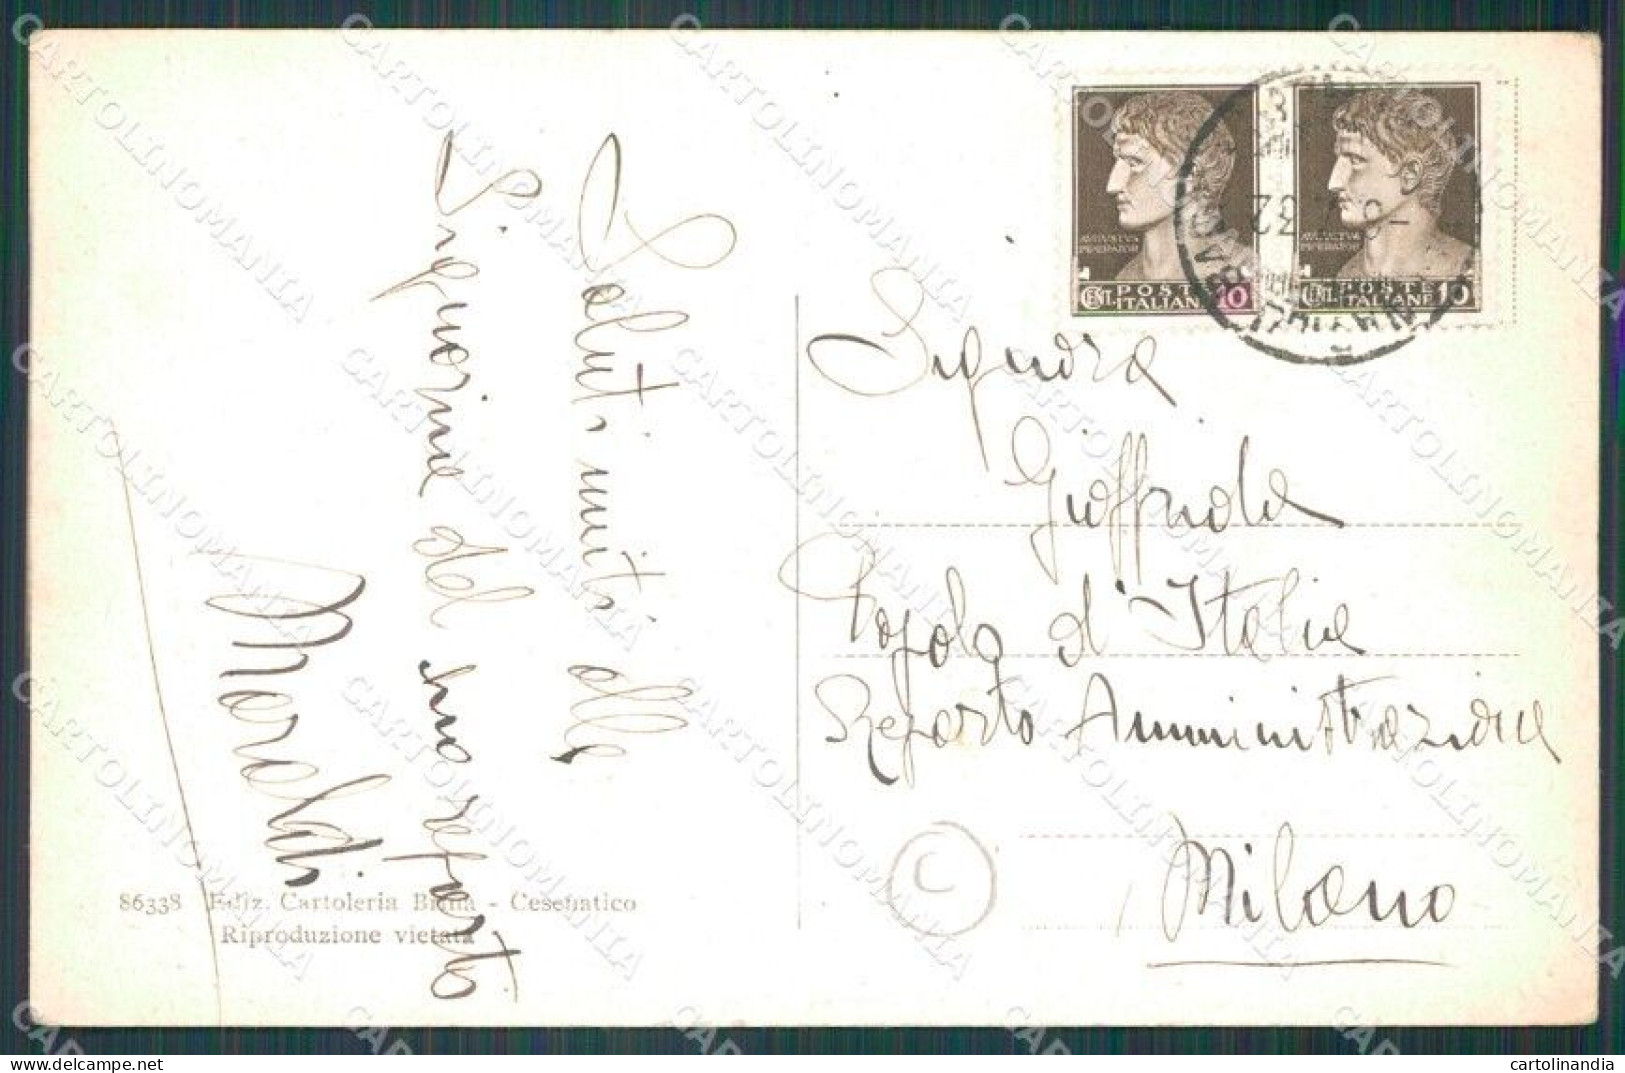 Saluti uniti alle
Signorine del suo reparto
Maraldi
86338 Ediz. Cartoleria - Cesenatico
Riproduzione vietata
AVGVSTVS
IMPERATOR
POSTE
CENT. ITALIANE 10
AVGVSTVS
IMPERATOR
POSTE
CENT. ITALIANE 10
Signora
Gioffrida
Popolo d'Italia
Reparto Amministrazione
Milano
C
CARTOLINOMANIA
cartolinandia